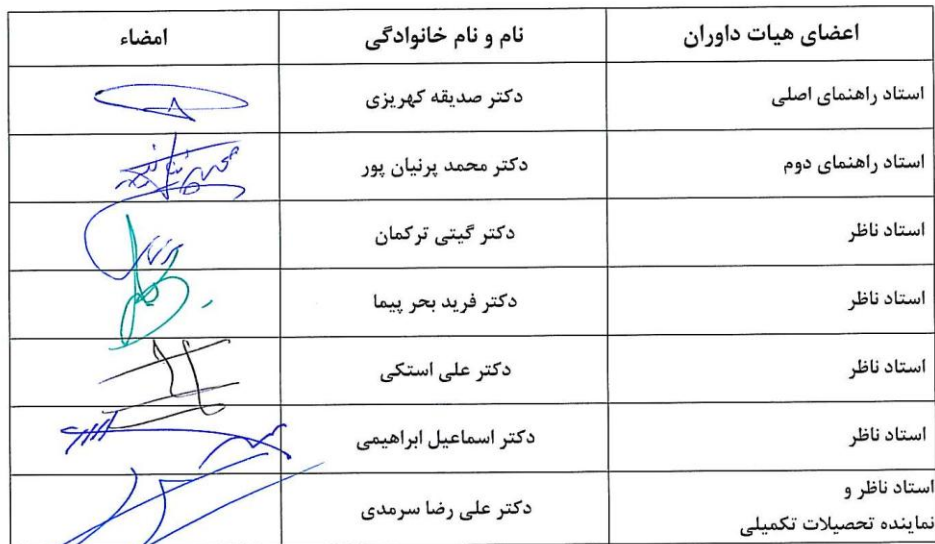 اعضای هیات داوران	نام و نام خانوادگی	امضاء
استاد راهنمای اصلی	دکتر صدیقه کهریزی
استاد راهنمای دوم	دکتر محمد پرنیان پور
استاد ناظر	دکتر گیتی ترکمان
استاد ناظر	دکتر فرید بحر پیما
استاد ناظر	دکتر علی استکی
استاد ناظر	دکتر اسماعیل ابراهیمی
استاد ناظر و
نماینده تحصیلات تکمیلی	دکتر علی رضا سرمدی